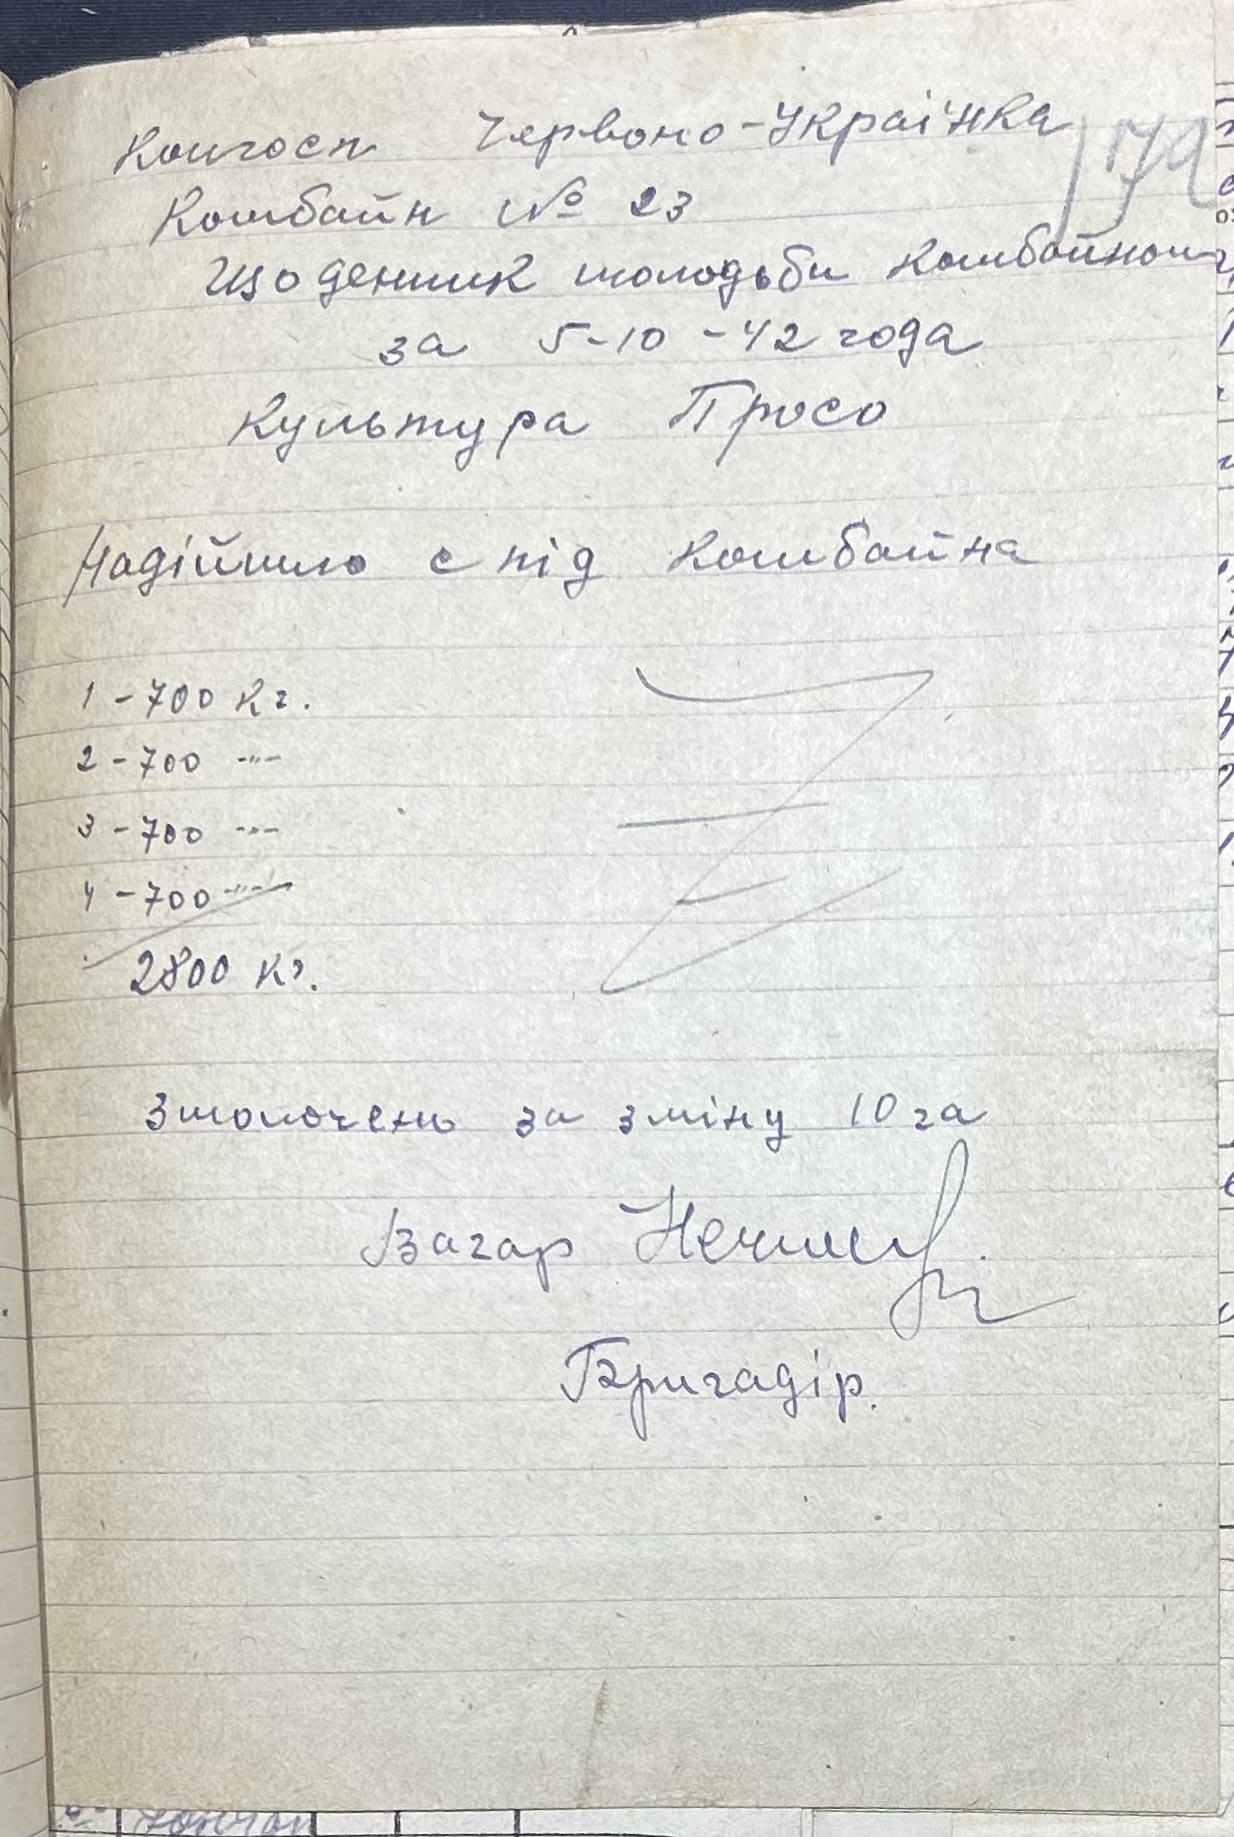 Колгосп Червоно-Українка
179
Комбайн № 23
Щоденник молодьби комбайном
за 5-10-42 года
Культура Просо
Надійшло с під комбайна
1 - 700 кг.
2 - 700 -"-
3 - 700 -"-
4 - 700 -"-
2800 кг.
Змолочено за зміну 10 га
Вагар
Бригадір.